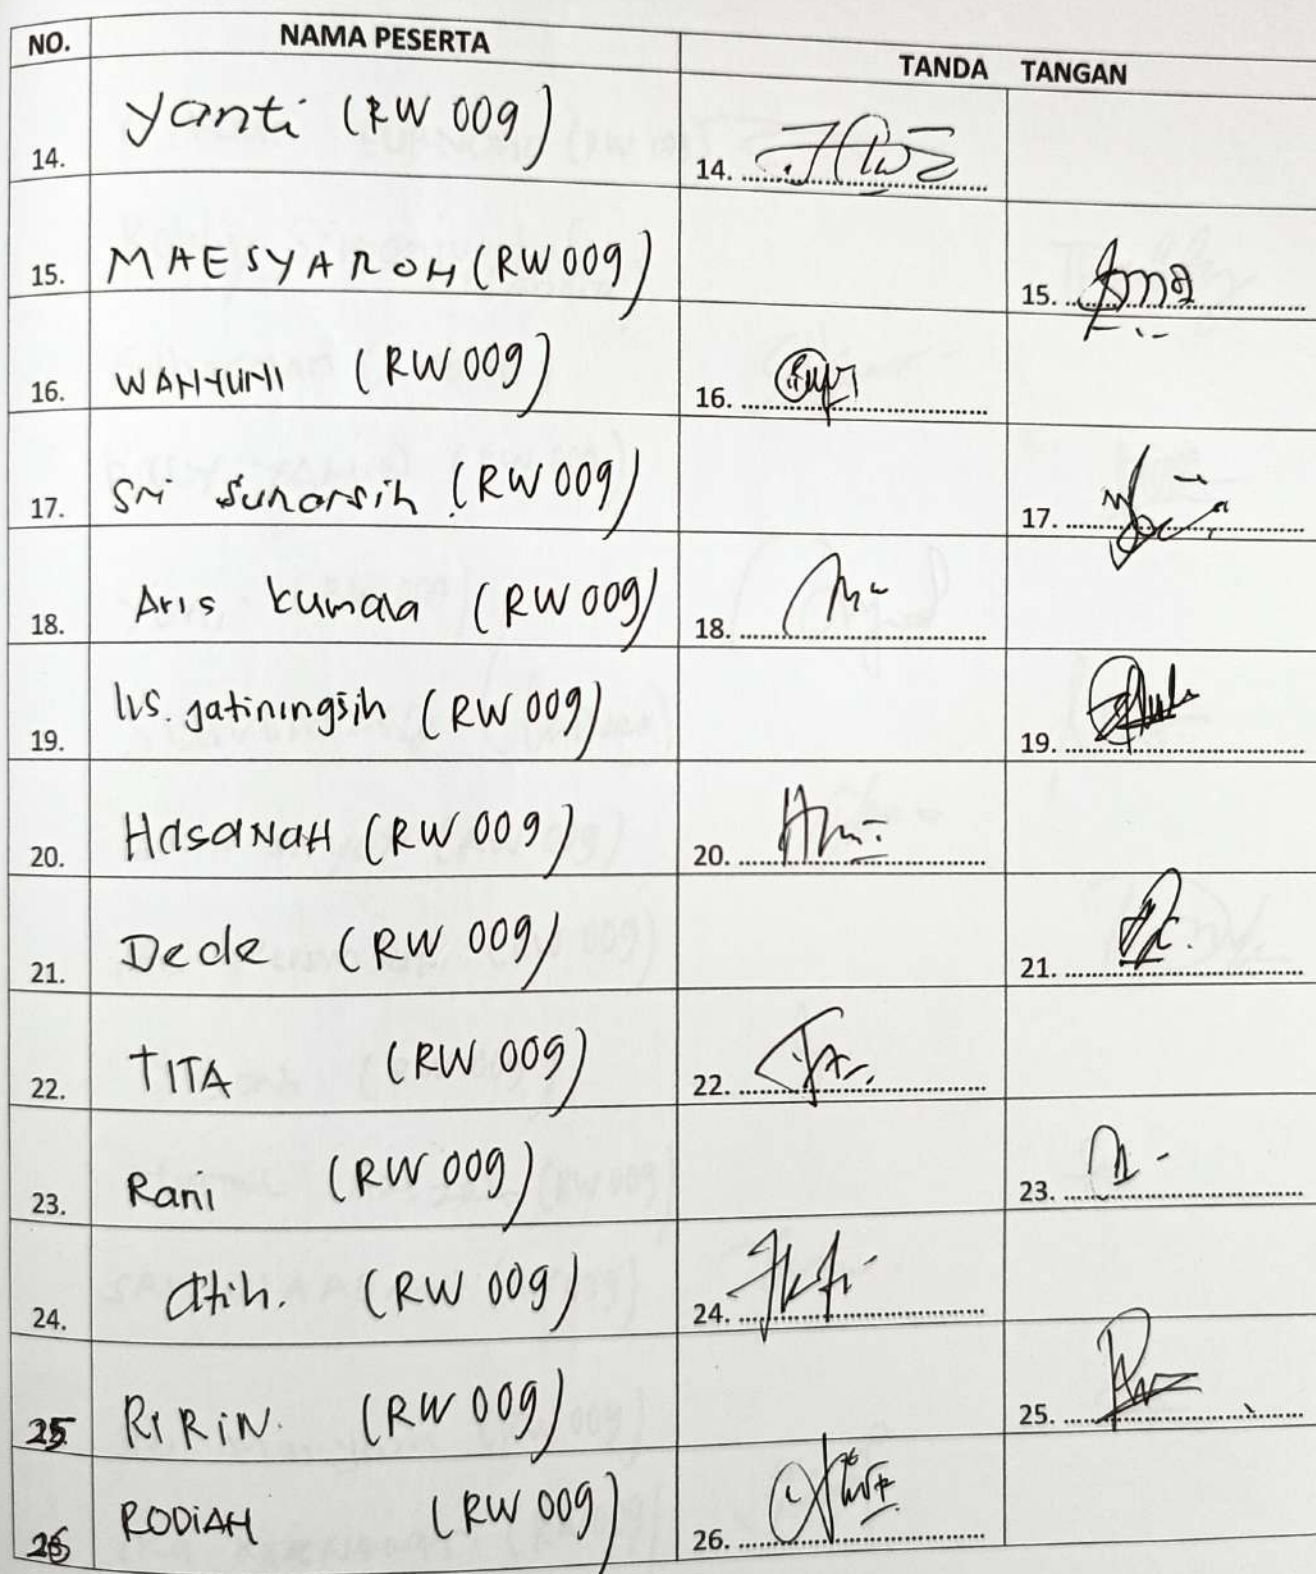 NO. NAMA PESERTA TANDA TANGAN
14. Yanti (RW 009) 14.
15. MAESYAROH (RW 009) 15.
16. WAHYUNI (RW 009) 16.
17. Sri Sunarsih (RW 009) 17.
18. Aris kumala (RW 009) 18.
19. Iis. jatiningsih (RW 009) 19.
20. HasaNaH (RW 009) 20.
21. Dede (RW 009) 21.
22. TITA (RW 009) 22.
23. Rani (RW 009) 23.
24. atih. (RW 009) 24.
25 RiRiN. (RW 009) 25.
26 RODiAH (RW 009) 26.